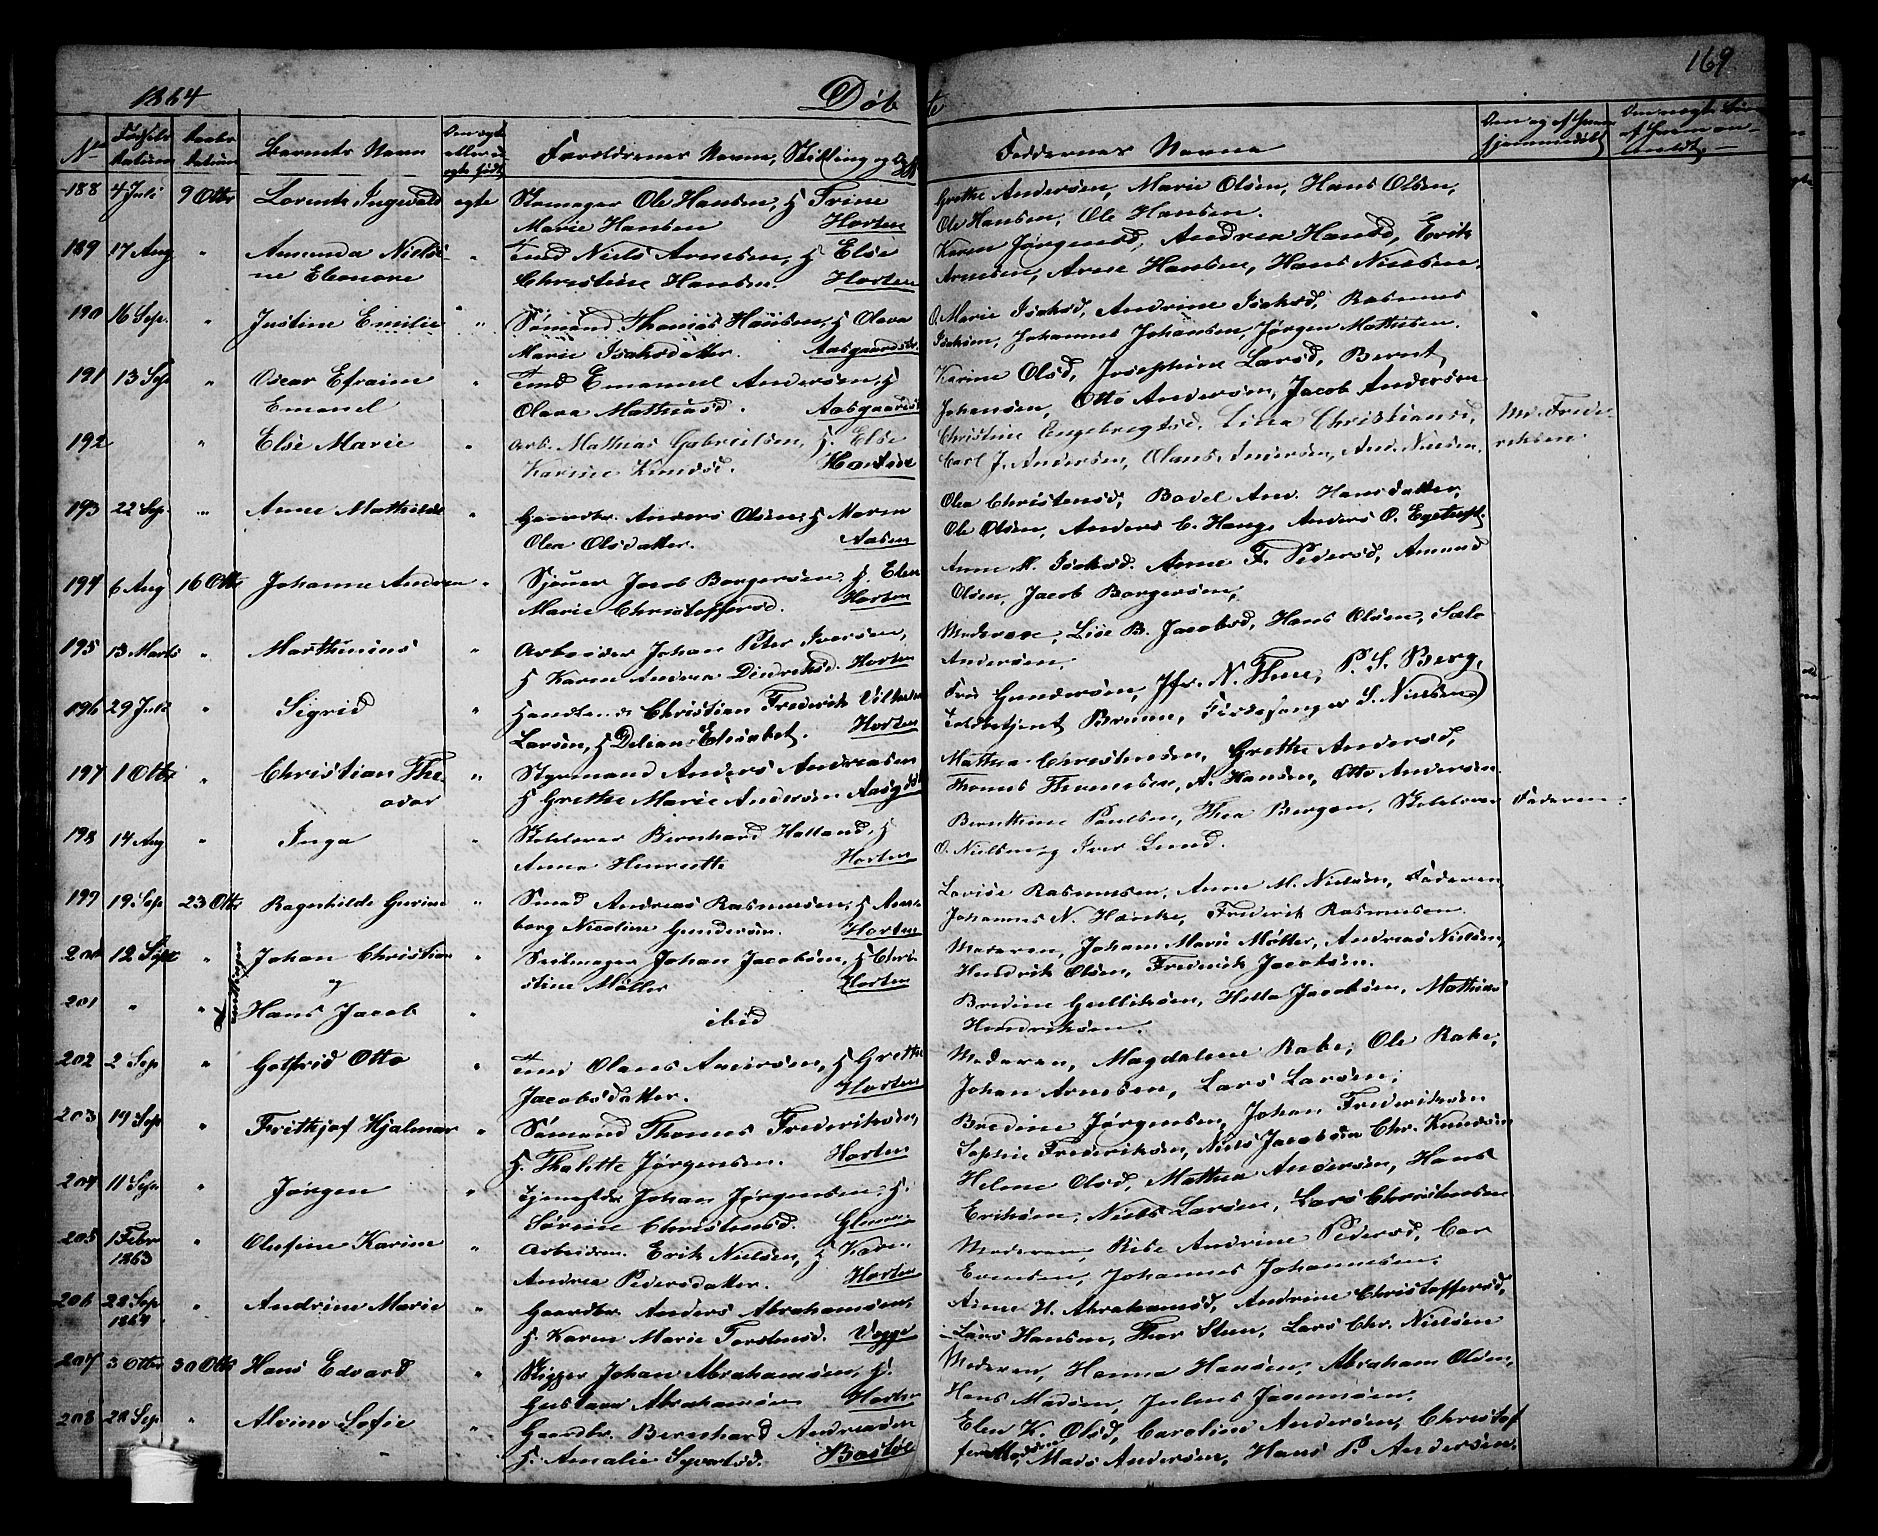 1864
Døbte
169
No
Fødsels Datum
Daabs Datum
Barnets Navn
Om ægte eller uægte født
Forældrenes Navne, Stilling og
Faddernes Navne
188 4 Juli 9 Otbr Lorents Ingvald ægte Skomager Ole Hansen, H Trine
Marie Hansen Horten
Grethe Andersen, Marie Olsen, Hans Olsen,
Ole Hansen, Ole Hansen.
189 17 Aug " Amanda Nielsi- " Tmd Niels Arnesen, H Else
ne Eleonore Christine Hansen. Horten
Karen Jørgensd, Andrea Hansd, Erik
Arnesen, Arne Hansen, Hans Nielsen.
190 16 Sep. " Justine Emilie " Sømand Thomas Hansen, H Olava
Marie Isaksdatter. Aasgaardst.
O. Marie Isaksd, Andrine Isaksd, Rasmus
Isaksen, Johannes Johansen, Jørgen Mathisen.
191 13 Sep " Oscar Efraim " Tmd Emanuel Andersen, H
Emanel Olava Mathiasd. Aasgaardst
Karine Olsd, Josephine Larsd, Bernt
Johansen, Otto Andersen, Jacob Andersen
192 " Else Marie " Arb. Mathias Gabrielsen, H. Else
Karine Knudsd. Horten
Christine Engebregtsd, Lina Christiansd,
Carl J. Andersen, Olaus Andersen, And. Nielsen.
M. Frede
riksen.
193 22 Sep. " Anne Mathilde " Gaardbr. Anders Olsen, H Maren
Olea Olsdatter. Aasen
Olea Christensd, Bodel And. Hansdatter,
Ole Olsen, Anders C. Haug, Anders O.
194 6 Aug 16 Otbr Johanne Andrea " Sjouer Jacob Borgersen, H. Elen
Marie Christoffersd. Horten
Anne M. Isaksd. Anne F. Pedersd, Amund
Olsen, Jacob Borgersen,
195 13 Marts " Marthinius " Arbeider Johan Peter Iversen,
H Karen Andrea Diedriksd. Horten
Moderen, Lise B. Jacobsd, Hans Olsen,
Andersen.
196 29 Juli " Sigrid " Christian Frederik
Larsen, H Elisabet. Horten
Fru Gundersen, Jfr. N. Thue, P. S. Berg,
Toldbetjent Bruun, S. Nielsen
197 1 Otbr " Christian The " Styrmand Anders Andreasen
odor H Grethe Marie Andersen Aasgdst
Mathea Christensen, Grethe Andersd,
Thomas Thomesen, A. Hansen, Otto Andersen.
198 14 Aug " Inga " Skolelærer Bernhard Halland, H
Anna Henriette Horten
Bernthine Paulsen, Thea Bergan, Skolelærer
O. Nielsen og Iver Lund.
Faderen.
199 19 Sep 23 Otbr Ragnhilde Gurine " Smed Andreas Rasmussen, H Anne
borg Nicoline Gundersen. Horten
Lovise Rasmussen, Anne M. Nielsen, Faderen,
Johannes N. Hancke, Frederik Rasmussen.
200 12 Sept " Johan Christian " Seilmager Johan Jacobsen, H Chri-
stine Møller Horten
og
Tvillinger
Moderen, Johan Marie Møller, Andreas Nielsen,
Hendrik Olsen, Frederik Jacobsen.
201 " " Hans Jacob " ibid
Bredine Gulliksen, Hella Jacobsen, Mathias
Hendriksen.
202 2 Sep " Gotfrid Otto " Tmd Olaus Andersen, H Grethe
Jacobsdatter. Horten
Moderen, Magdalene Rake, Ole Rake,
Johan Arnesen, Lars Larsen.
203 19 Sep " Frithjof Hjalmar " Sømand Thomas Frederiksen,
H. Thalette Jørgensen. Horten
Bredine Jørgensen, Johan Frederiksen
Sophie Frederiksen, Niels Jacobsen Chr. Knudsen
204 11 Sep " Jørgen " Johan Jørgensen, H.
Sørine Christensd.
Helene Olsd, Mathea Andersen, Hans
Eriksen, Niels Larsen, Lars Christensen
205 1 Febr 1863 " Olufine Karine " Arbeideren Erik Nielsen, H Karen
Andrea Pedersdatter. Horten
Moderen Rise Andrine Pedersd,
Evensen, Johannes Johannesen.
206 28 Sep 1864 " Andrine Marie " Gaardbr Anders Abrahamsen,
H Karen Marie Torstensd.
Anne H. Abrahamsd, Andrine Christoffersd,
Lars Hansen, Thor Steen, Lars Chr. Nielsen
207 3 Otbr 30 Otbr Hans Edvard " Rigger Johan Abrahamsen, H.
Gustava Abrahamsen Horten
Moderen, Hanna Hansen, Abraham Olsen,
Hans Madsen, Julius
208 20 Sep " Alvine Sofie " Gaardbr. Bernhard Andreasen
H. Amalie Syvertsd. Bastø
Elen K. Olsd, Caroline Andersen, Christof
fer Mads Andersen, Hans P. Andersen.